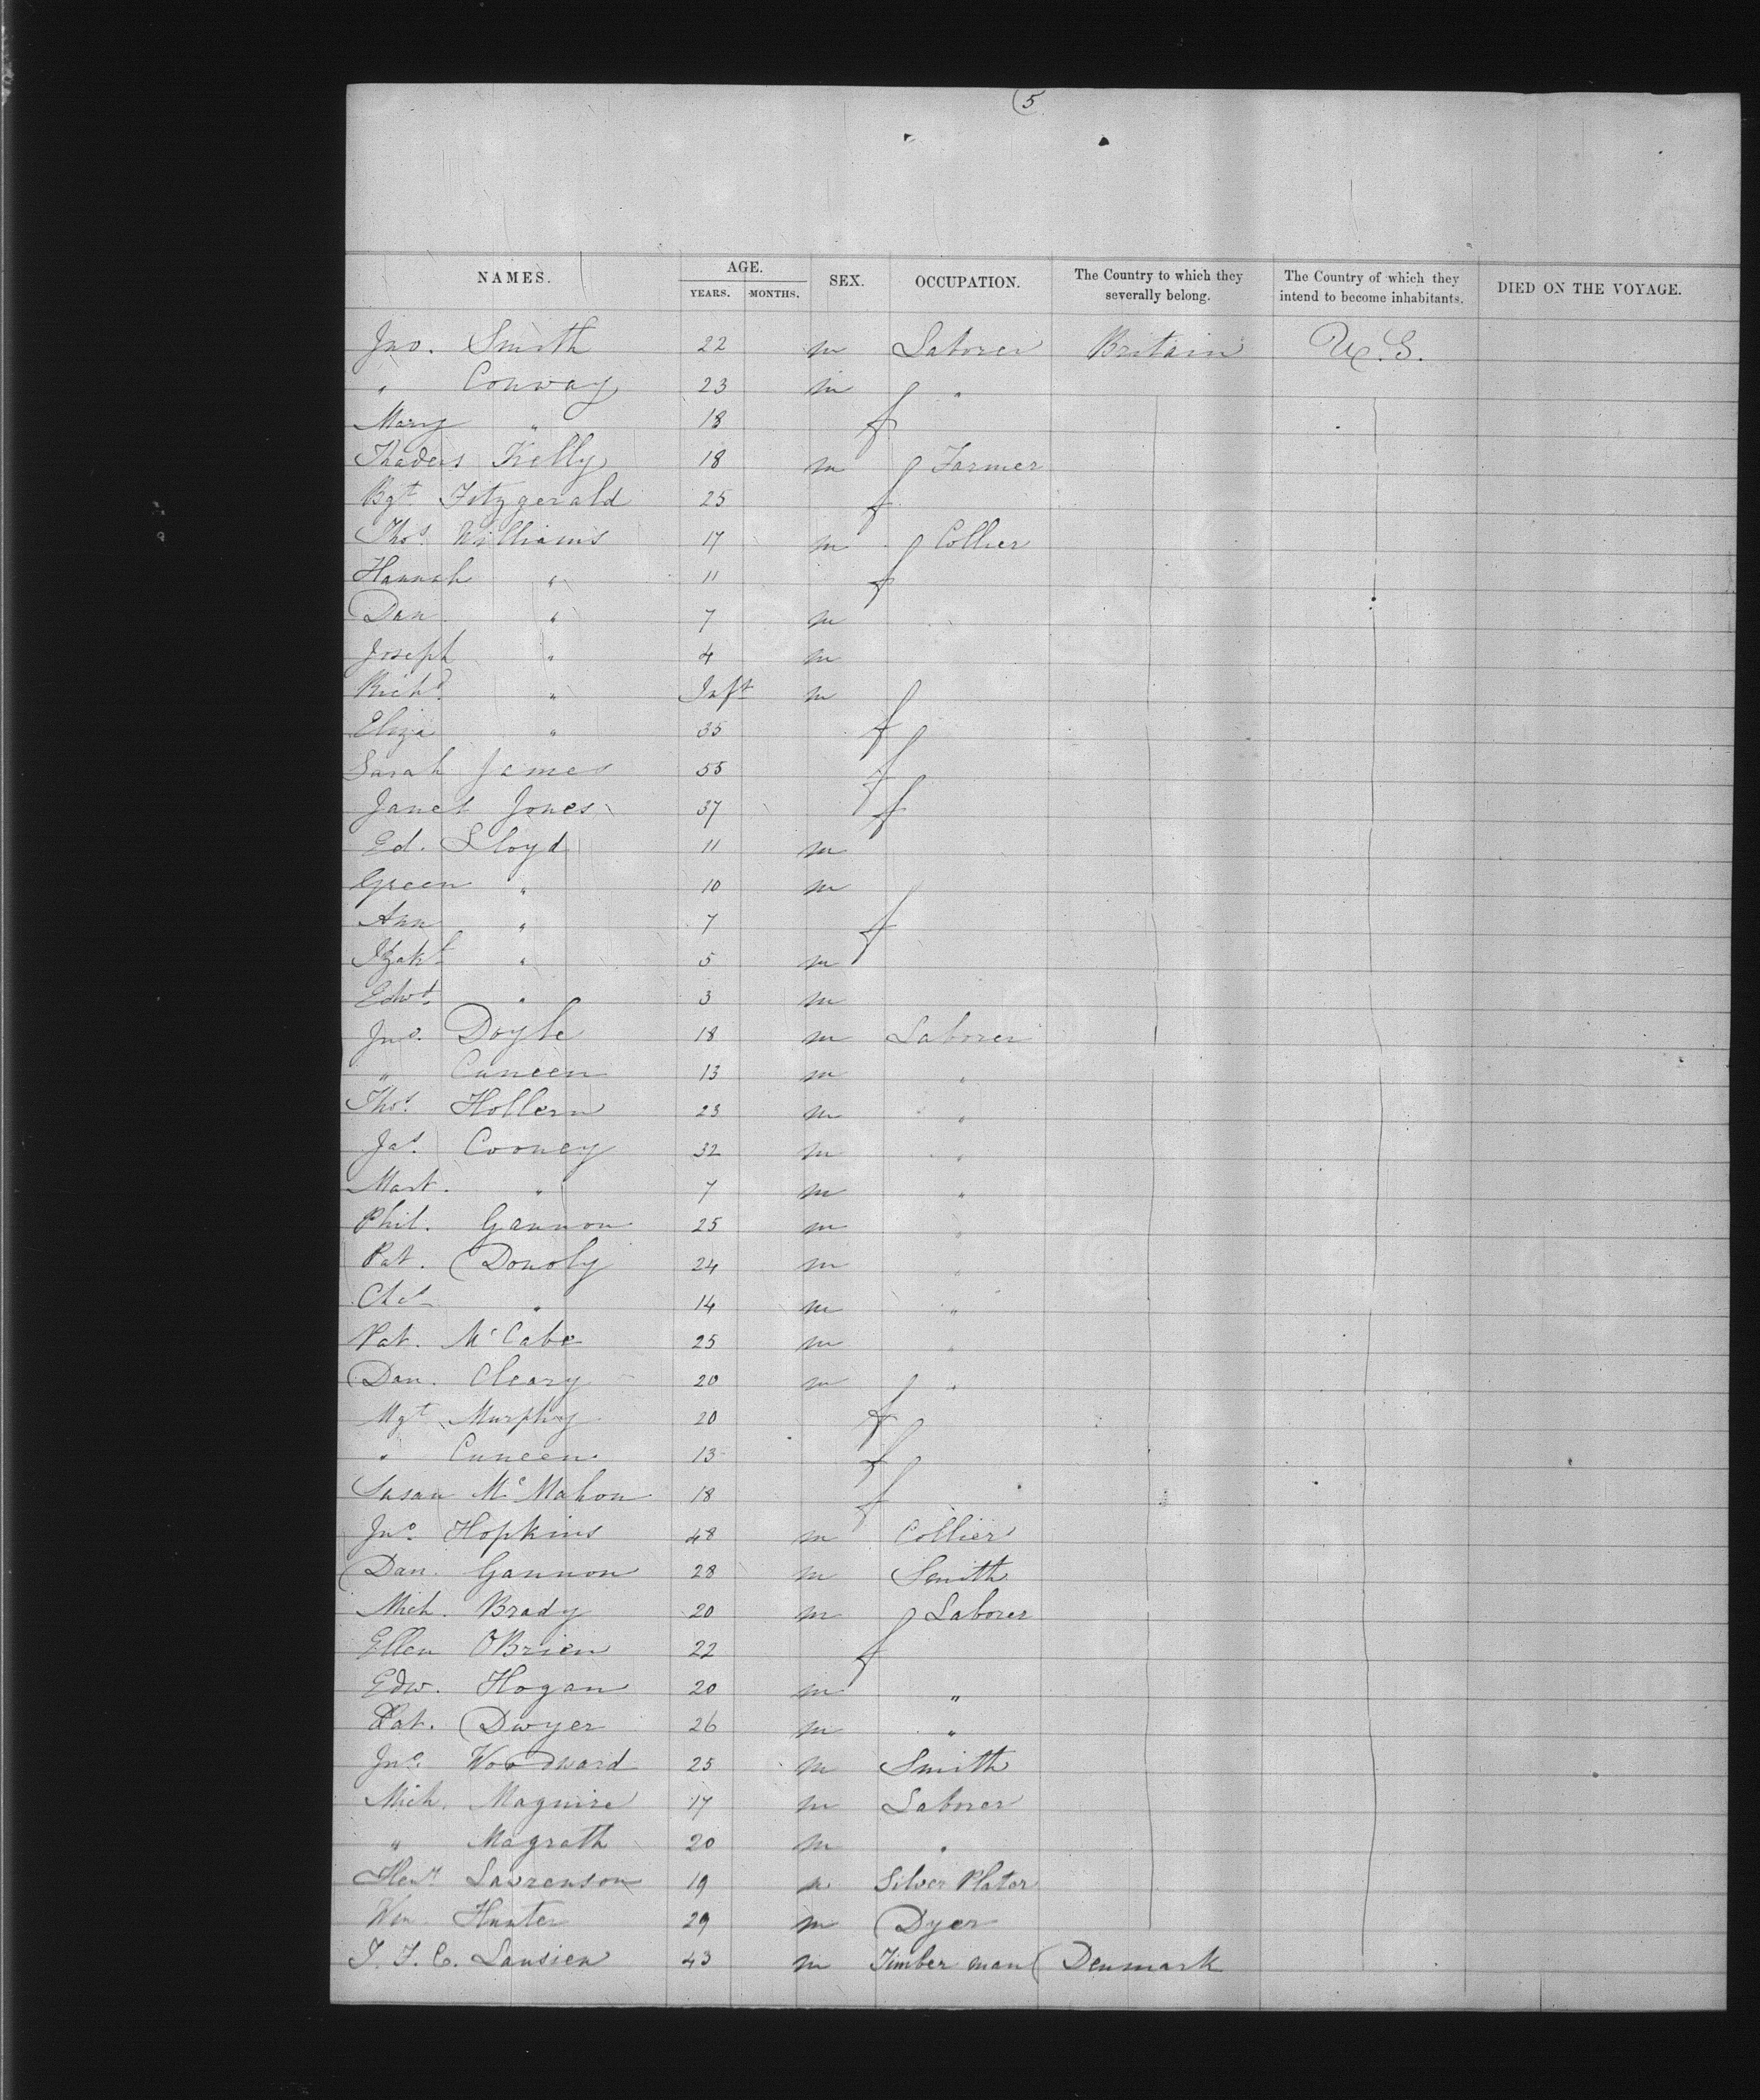 (5
NAMES. AGE. YEARS. MONTHS. SEX. OCCUPATION. The Country to which they severally belong. The Country of which they intend to become inhabitants. DIED ON THE VOYAGE.
Jno. Smith 22 m Laborer Britain U.S.
" Conway 23 m "
Mary " 18 f
Thadeus Kelly 18 m Farmer
Bgt Fitzgerald 25 f
Thos. Williams 17 m Collier
Hannah " 11 f
Dan " 7 m
Joseph " 4 m
Richd " Inft m
Eliza " 35 f
Sarah James 55 f
Janet Jones 37 f
Ed. Lloyd 11 m
Green " 10 m
Ann " 7 f
" 5 m
Edwd " 3 m
Jno. Doyle 18 m Laborer
" Cuneen 13 m "
Thos. Hollern 23 m "
Jas. Cooney 32 m "
Mart. " 7 m "
Phil. Gannon 25 m "
Pat. Donoly 24 m "
Chs " 14 m "
Pat. McCabe 25 m "
Dan. Cleary 20 m "
Mgt Murphy 20 f
" Cuneen 13 f
Susan McMahon 18 f
Jno. Hopkins 48 m Collier
Dan. Gannon 28 m Smith
Mich. Brady 20 m Laborer
Ellen OBrien 22 f
Edw. Hogan 20 m "
Pat. Dwyer 26 m "
Jno. Woodward 25 m Smith
Mich. Maguire 17 m Laborer
" Magrath 20 m "
Heny Lawrenson 19 m Silver Plater
Wm Hunter 29 m Dyer
J. F. C. Lansien 43 m Timber man Denmark